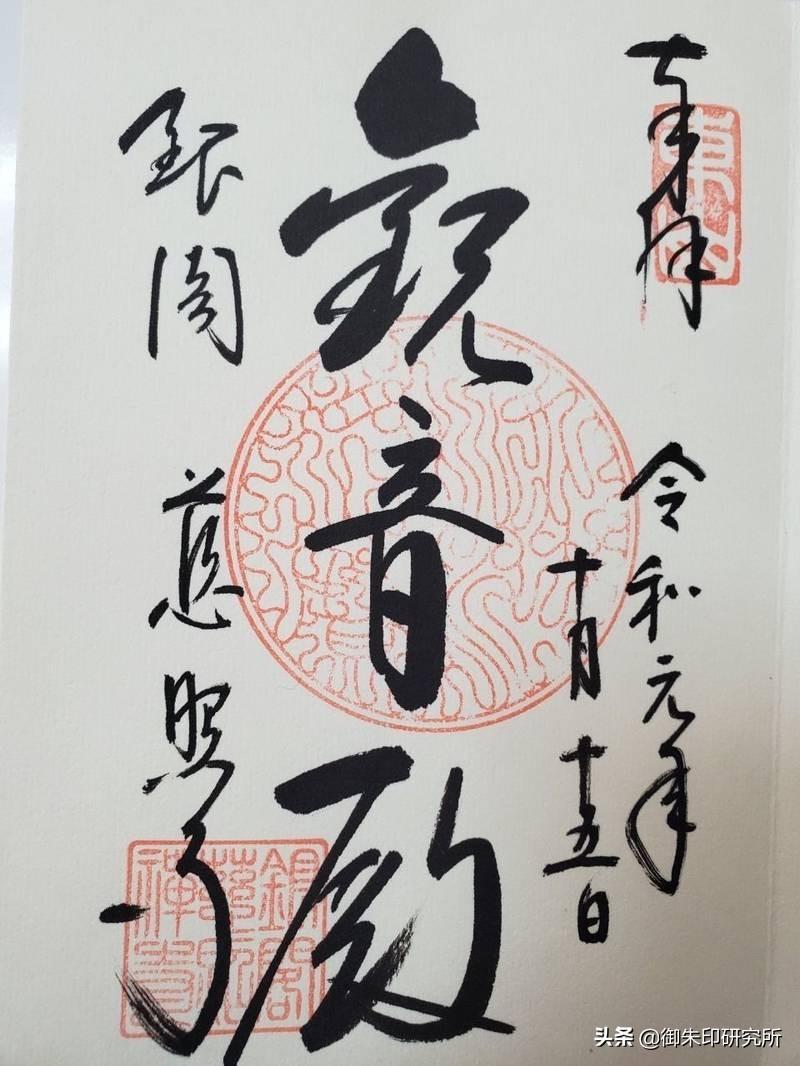 奉拝
東山
令和元年
十月十五日
観音殿
銀閣
慈照寺
銀閣
慈照
禪寺
头条 @御朱印研究所